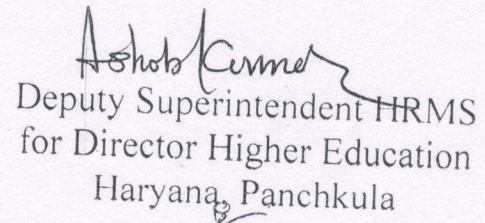 Ashok Kumar
Deputy Superintendent HRMS
for Director Higher Education
Haryana, Panchkula